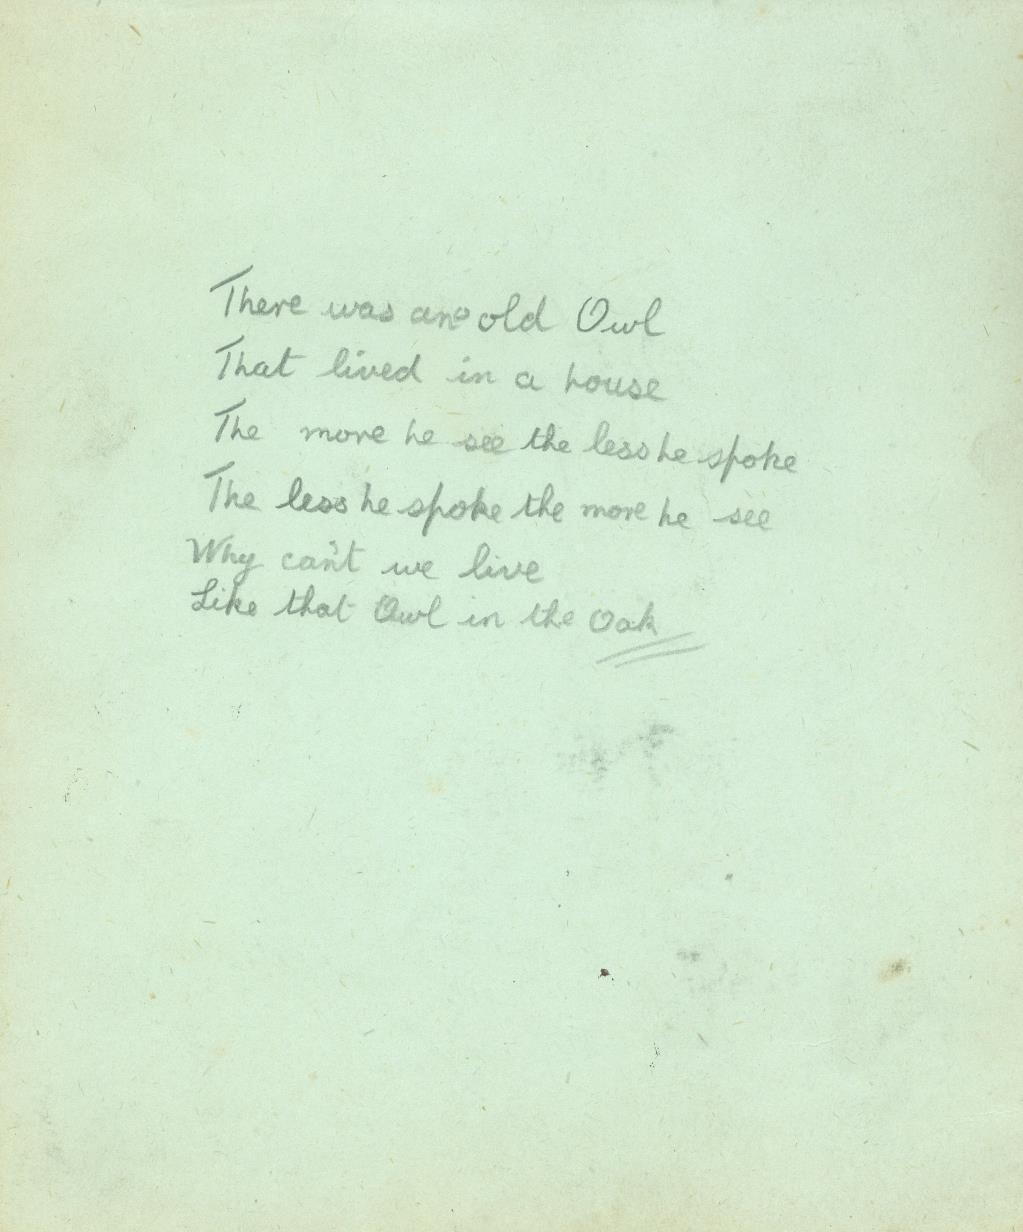 There was an old Owl
That lived in a house
The more he see the less he spoke
The less he spoke the more he see
Why can't we live
Like that Owl in the Oak